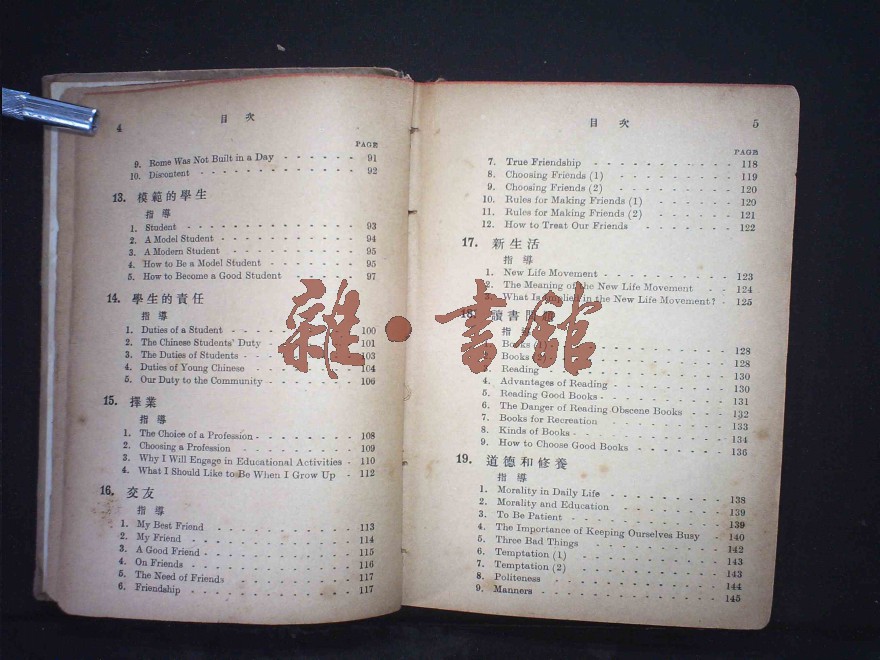 4 目 次
PAGE
9. Rome Was Not Built in a Day - - - - - - 91
10. Discontent - - - - - - - - - - - - 92
13. 模範的學生
指 導
1. Student - - - - - - - - - - - - 93
2. A Model Student - - - - - - - - - 94
3. A Modern Student - - - - - - - - - 95
4. How to Be a Model Student - - - - - - - 95
5. How to Become a Good Student - - - - - - 97
14. 學生的責任
指 導
1. Duties of a Student - - - - - - - - 100
2. The Chinese Students' Duty - - - - - - 101
3. The Duties of Students - - - - - - - 103
4. Duties of Young Chinese - - - - - - - 104
5. Our Duty to the Community - - - - - - 106
15. 擇業
指 導
1. The Choice of a Profession - - - - - - - 108
2. Choosing a Profession - - - - - - - - 109
3. Why I Will Engage in Educational Activities - 110
4. What I Should Like to Be When I Grow Up - 112
16. 交友
指 導
1. My Best Friend - - - - - - - - - 113
2. My Friend - - - - - - - - - - 114
3. A Good Friend - - - - - - - - - 115
4. On Friends - - - - - - - - - - 116
5. The Need of Friends - - - - - - - - 117
6. Friendship - - - - - - - - - - 117
目 次 5
PAGE
7. True Friendship - - - - - - - - - 118
8. Choosing Friends (1) - - - - - - - 119
9. Choosing Friends (2) - - - - - - - 120
10. Rules for Making Friends (1) - - - - - - 120
11. Rules for Making Friends (2) - - - - - - 121
12. How to Treat Our Friends - - - - - - 122
17. 新生活
指 導
1. New Life Movement - - - - - - - - 123
2. The Meaning of the New Life Movement - - 124
3. What Is Implied in the New Life Movement? - 125
18. 讀書
指 導
1. Books (1) - - - - - - - - - - 128
2. Books (2) - - - - - - - - - - 128
3. Reading - - - - - - - - - - - 130
4. Advantages of Reading - - - - - - - 130
5. Reading Good Books - - - - - - - - 131
6. The Danger of Reading Obscene Books - - - 132
7. Books for Recreation - - - - - - - - 133
8. Kinds of Books - - - - - - - - - - 134
9. How to Choose Good Books - - - - - - 136
19. 道德和修養
指 導
1. Morality in Daily Life - - - - - - - - 138
2. Morality and Education - - - - - - - 139
3. To Be Patient - - - - - - - - - - 139
4. The Importance of Keeping Ourselves Busy - 140
5. Three Bad Things - - - - - - - - - 142
6. Temptation (1) - - - - - - - - - 143
7. Temptation (2) - - - - - - - - - 143
8. Politeness - - - - - - - - - - - 144
9. Manners - - - - - - - - - - - 145
雜·書館